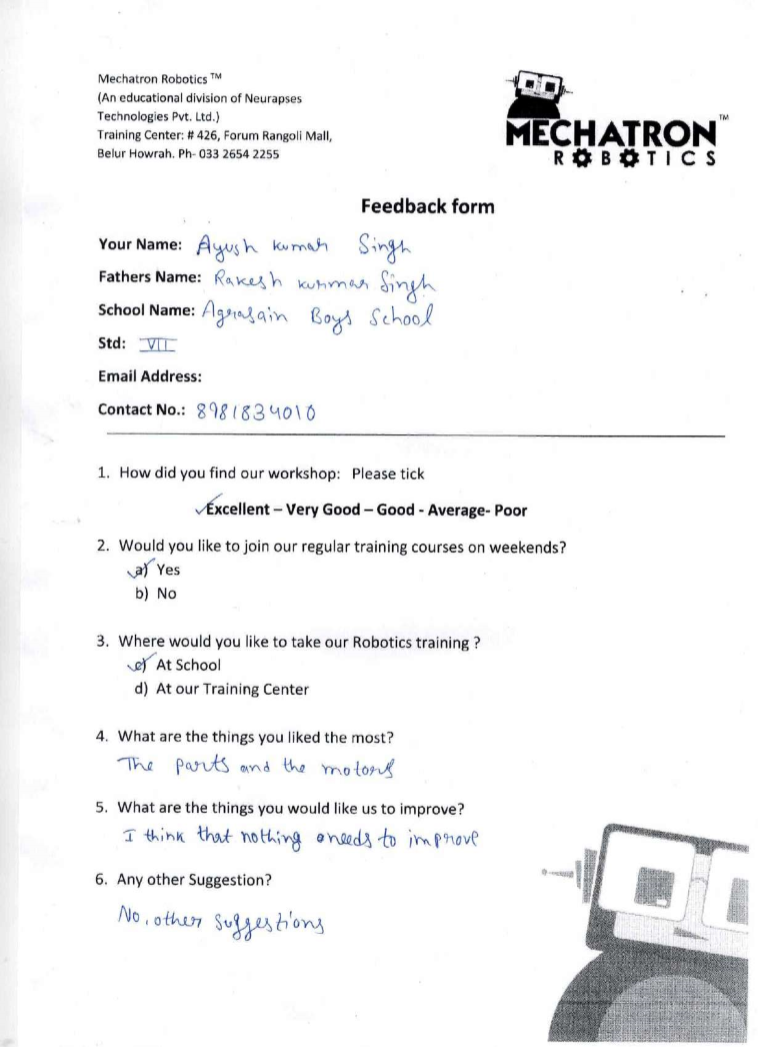 Mechatron Robotics ™
(An educational division of Neurapses
Technologies Pvt. Ltd.)
Training Center: # 426, Forum Rangoli Mall,
Belur Howrah. Ph- 033 2654 2255
MECHATRON™
ROBOTICS
Feedback form
Your Name: Ayush kumar Singh
Fathers Name: Rakesh kumar Singh
School Name: Agrasain Boys School
Std: VII
Email Address:
Contact No.: 8981834010
1. How did you find our workshop: Please tick
✓Excellent – Very Good – Good - Average- Poor
2. Would you like to join our regular training courses on weekends?
✓a) Yes
b) No
3. Where would you like to take our Robotics training ?
✓c) At School
d) At our Training Center
4. What are the things you liked the most?
The parts and the motors
5. What are the things you would like us to improve?
I think that nothing needs to improve
6. Any other Suggestion?
No, other suggestions